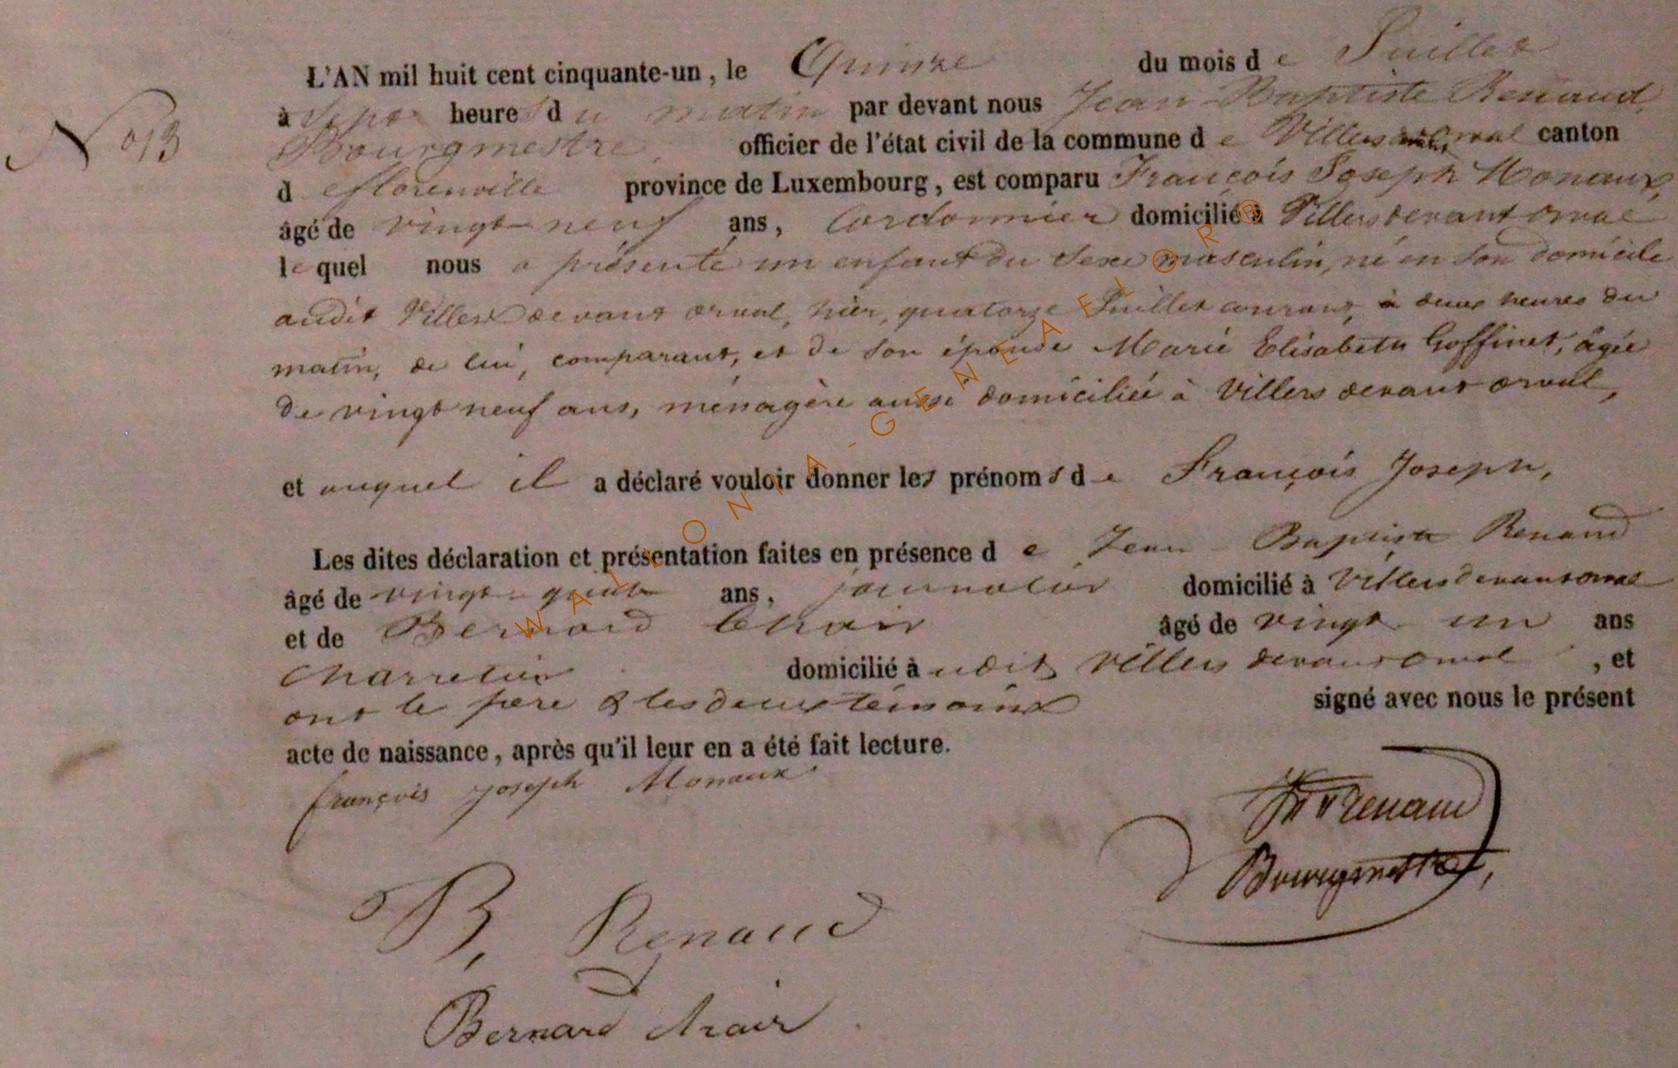 N° 13
L'AN mil huit cent cinquante-un, le Quinze du mois de Juillet
à sept heures du matin par devant nous Jean-Baptiste Renaud,
Bourgmestre, officier de l'état civil de la commune de Villers devant orval canton
de florenville province de Luxembourg, est comparu François Joseph Monaux,
âgé de vingt-neuf ans, Cordonnier domicilié à Villers devant orval
lequel nous a présenté un enfant du sexe masculin, né en son domicile
audit Villers devant orval, hier, quatorze Juillet courant, à deux heures du
matin, de lui, comparant, et de son épouse Marie Elisabeth Goffinet, âgée
de vingt neuf ans, ménagère aussi domiciliée à Villers devant orval,
et auquel il a déclaré vouloir donner les prénoms de François Joseph,
Les dites déclaration et présentation faites en présence de Jean-Baptiste Renaud
âgé de vingt ans, journalier domicilié à Villers devant orval
et de Bernard âgé de vingt un ans
charretier domicilié à udit Villers devant orval, et
ont le père & les deux témoins signé avec nous le présent
acte de naissance, après qu'il leur en a été fait lecture.
françois joseph Monaux
Renaud
Bourgmestre,
B, Renaud
Bernard
WALLONIA-GENEALOR®